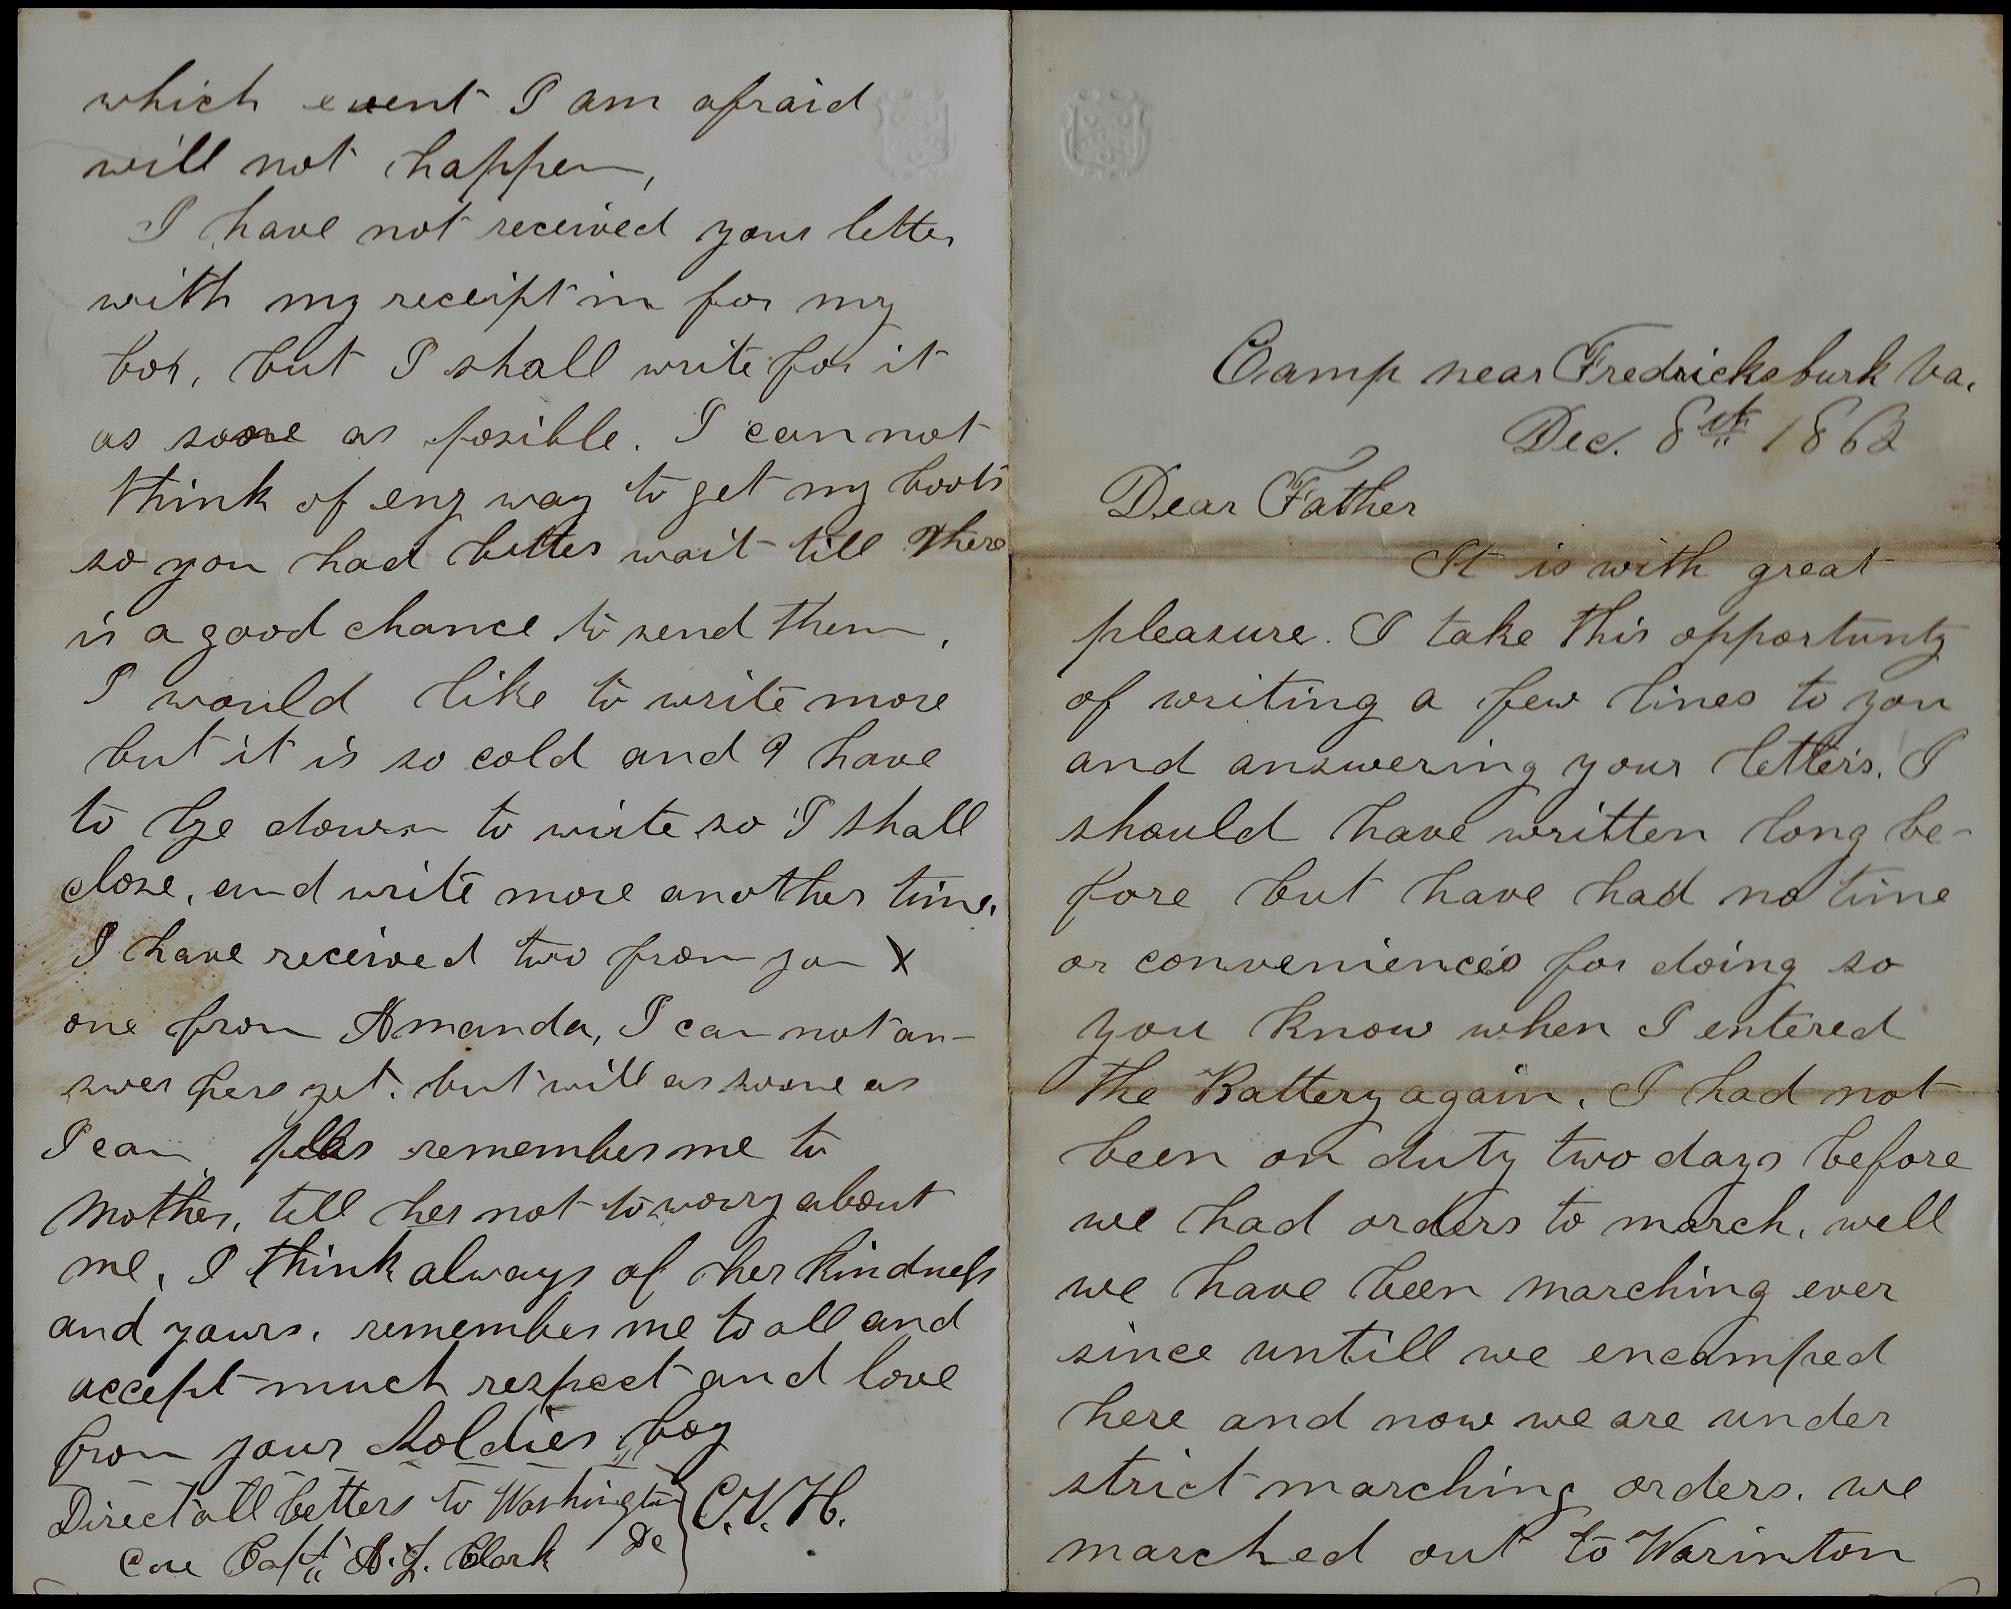 Camp near Fredricksburk Va.
Dec. 8th 1862
Dear Father
It is with great
pleasure. I take this opportunty
of writing a few lines to you
and answering your letters. I
should have written long be-
fore but have had no time
or conveniences for doing so
you know when I entered
the Battery again. I had not
been on duty two days before
we had orders to march. well
we have been marching ever
since untill we encamped
here and now we are under
strict marching orders. we
marched out to Warinton
which event I am afraid
will not happen,
I have not received your letter
with my receipt in for my
box, but I shall write for it
as soone as posible. I can not
think of eny way to get my boots
so you had better wait till there
is a good chance to send them,
I would like to write more
but it is so cold and I have
to lye down to wirte so I shall
close, and write more another time,
I have received two from you X
one from Amanda, I can not an-
swer hers yet. but will as soone as
I can remember me to
Mother, tell her not to worry about
me, I think always of her kindness
and yours. remember me to all and
accept much respect and love
from your Soldier boy
Direct all letters to Washington } C.V.H.
Care Capt. A. J. Clark Dc